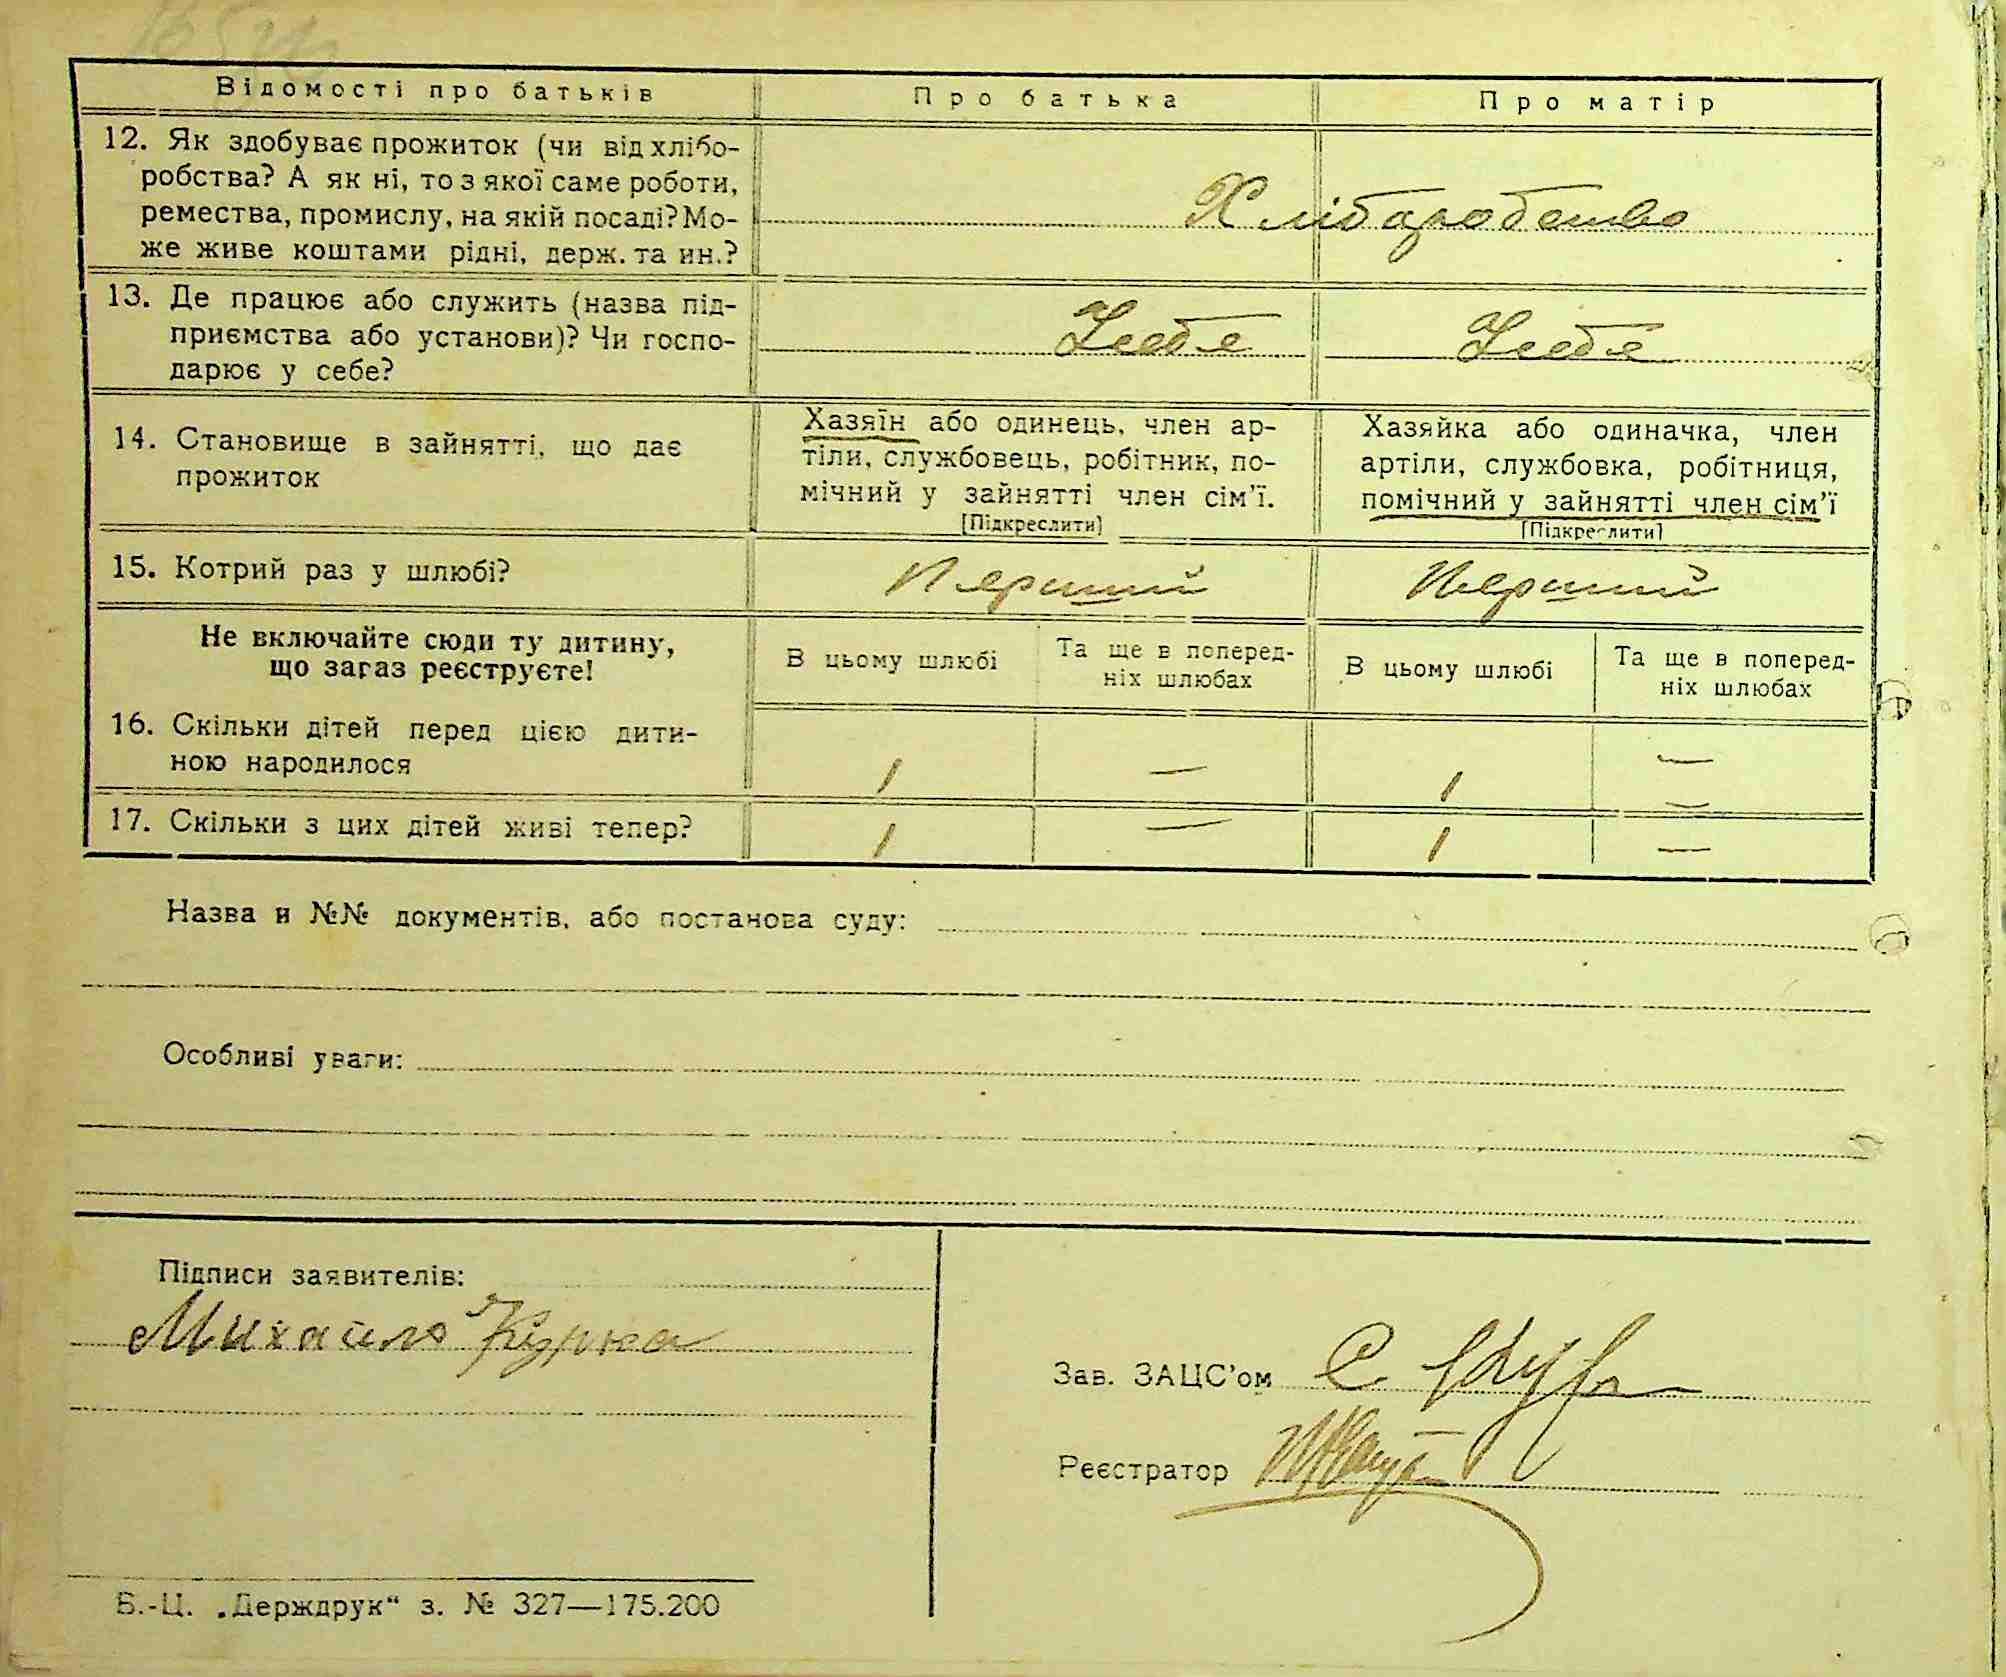 Відомості про батьків	Про батька	Про матір
12. Як здобуває прожиток (чи від хлібо-
робства? А як ні, то з якої саме роботи,
ремества, промислу, на якій посаді? Мо-
же живе коштами рідні, держ. та ин.?
Хліборобство
13. Де працює або служить (назва під-
приємства або установи)? Чи госпо-
дарює у себе?
У себе	У себе
14. Становище в зайнятті, що дає
прожиток
Хазяїн або одинець, член ар-
тіли, службовець, робітник, по-
мічний у зайнятті член сім'ї.
[Підкреслити]
Хазяйка або одиначка, член
артіли, службовка, робітниця,
помічний у зайнятті член сім'ї
[Підкреслити]
15. Котрий раз у шлюбі?	Перший	Перший
Не включайте сюди ту дитину,
що зараз реєструєте!
В цьому шлюбі	Та ще в поперед-
ніх шлюбах	В цьому шлюбі	Та ще в поперед-
ніх шлюбах
16. Скільки дітей перед цією дити-
ною народилося	1	—	1	—
17. Скільки з цих дітей живі тепер?	1	—	1	—
Назва и №№ документів, або постанова суду:
Особливі уваги:
Підписи заявителів:
Михайло
Зав. ЗАЦС'ом
Реєстратор
Б.-Ц. „Держдрук“ з. № 327—175.200